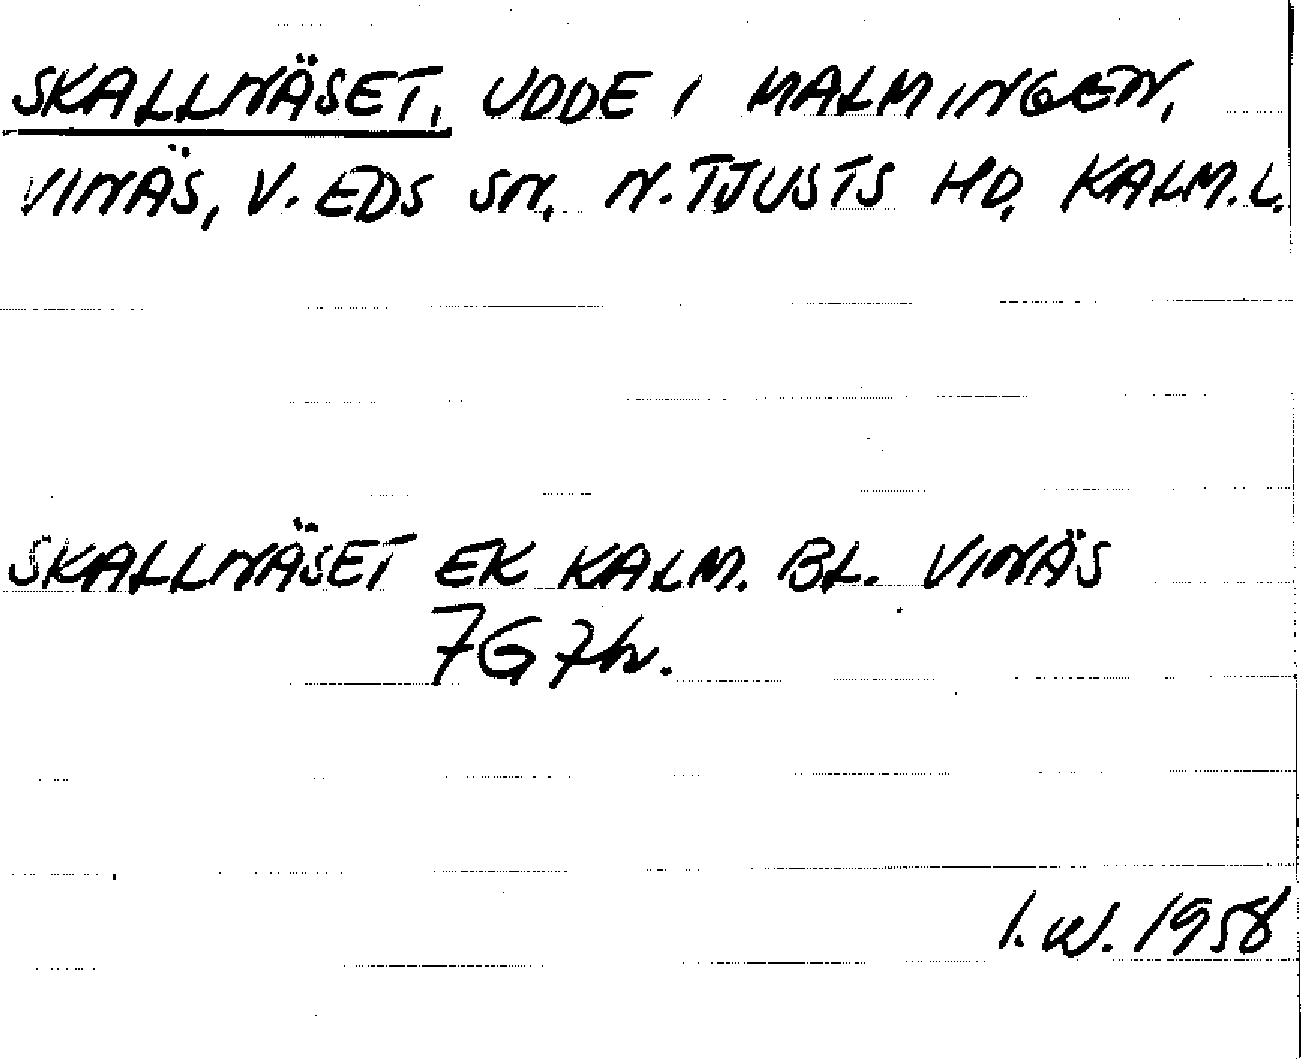 SKALLNÄSET, UDDE I MALMINGEN,
VINÄS, V. EDS SN, N. TJUSTS HD, KALM. L.
SKALLNÄSET EK KALM. BL. VINÄS
7G7h.
I. W. 1958